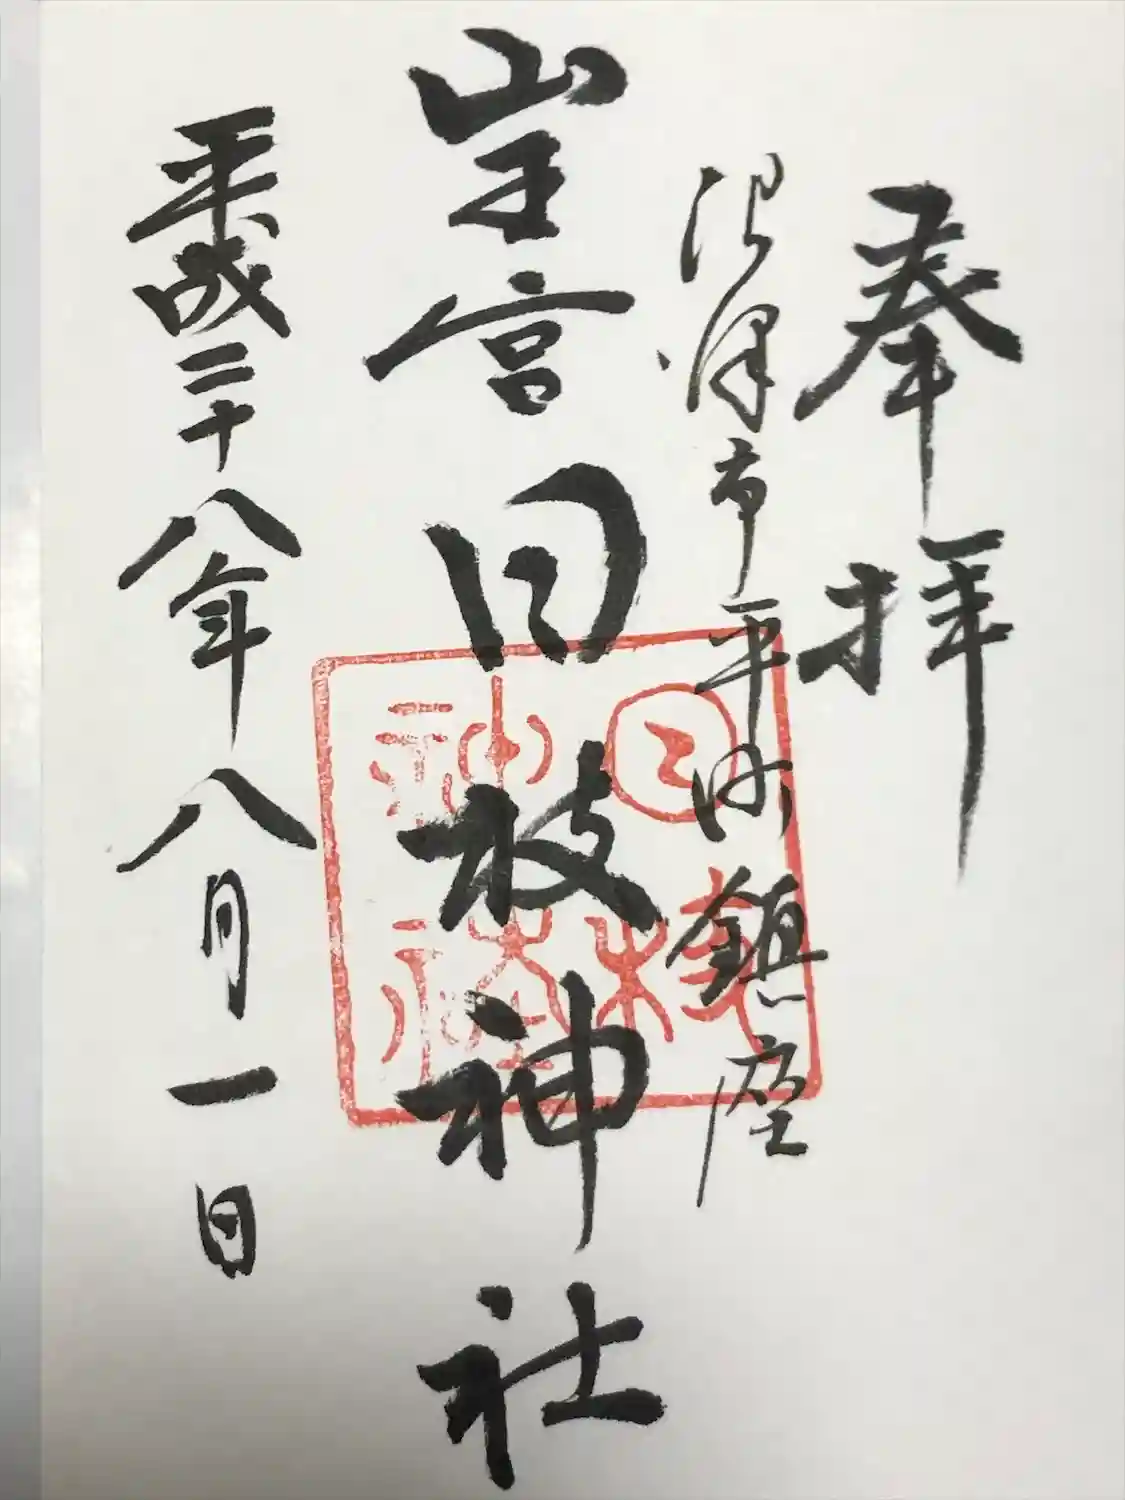 奉拝
沼津市平町鎮座
山王宮日枝神社
平成二十八年八月一日
日枝神社